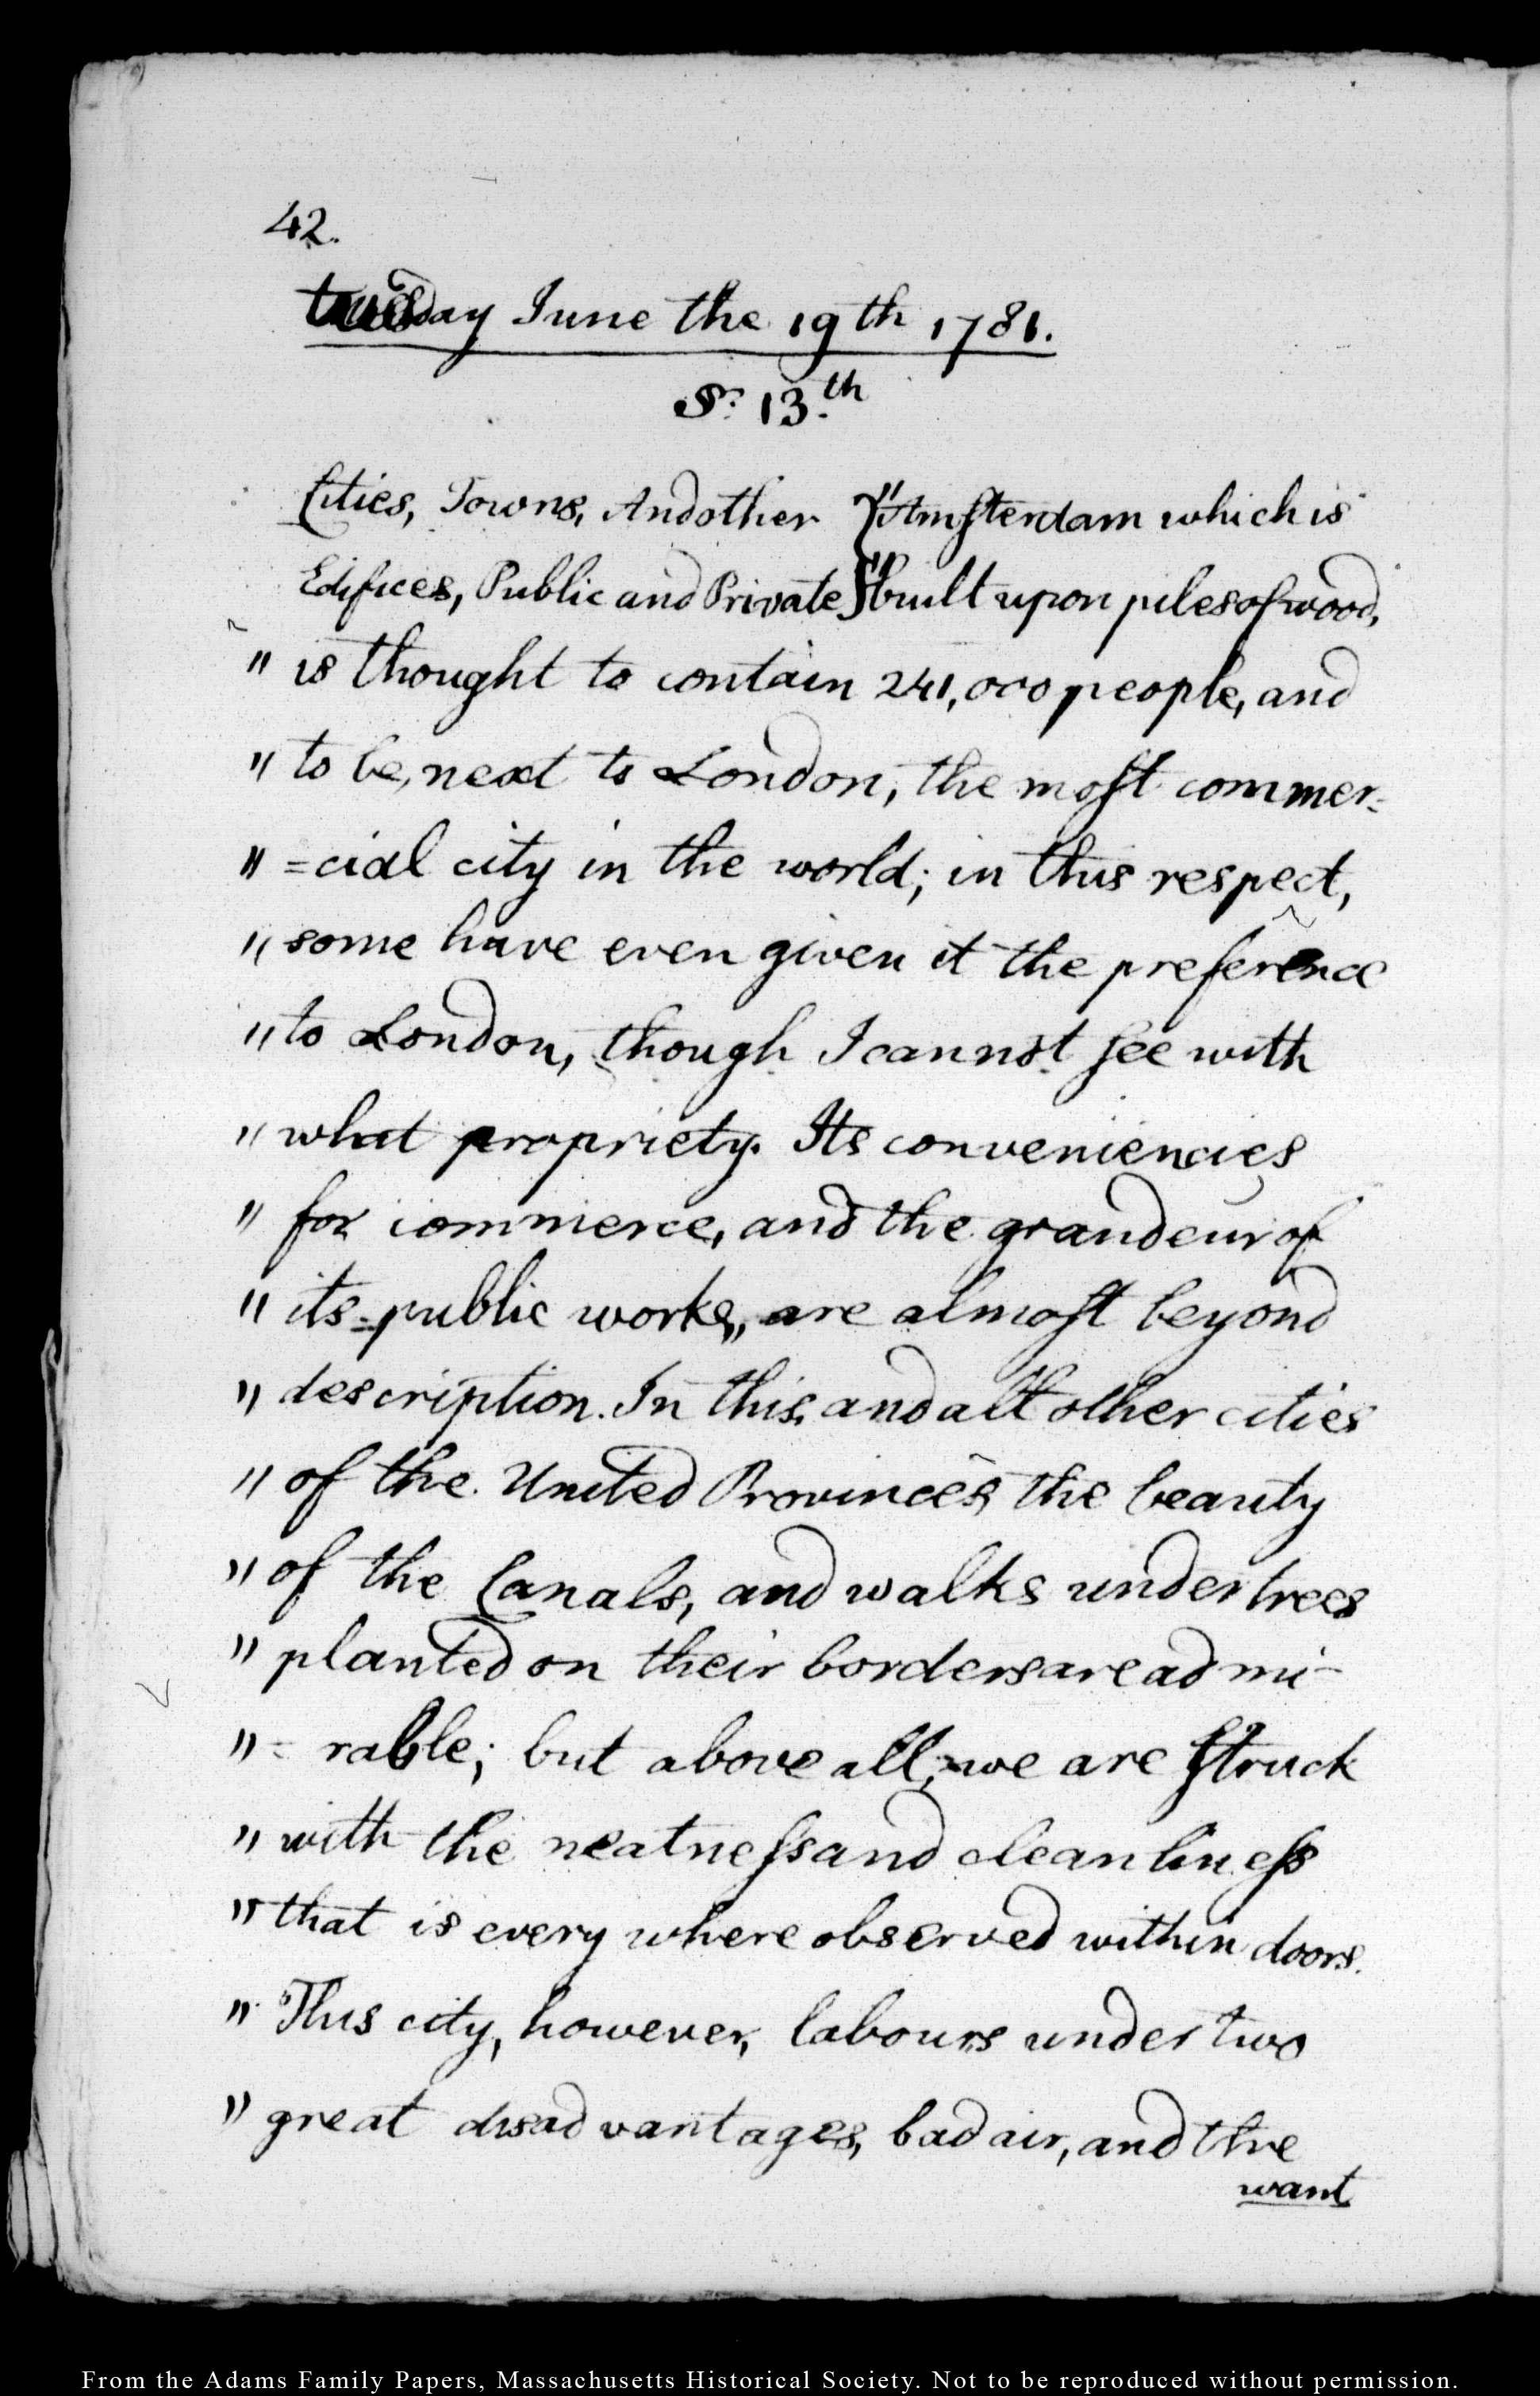 42.
tuesday June the 19th 1781.
Sn. 13.th
Cities, Towns, And other } "Amsterdam which is
Edifices, Public and Private } "built upon piles of wood,
" is thought to contain 241,000 people, and
" to be, next to London, the most commer=
" =cial city in the world; in this respect,
" some have even given it the preference
" to London, though I cannot see with
" what propriety. Its conveniencies
" for commerce, and the grandeur of
" its public works, are almost beyond
" description. In this, and all other cities
" of the United Provinces, the beauty
" of the Canals, and walks under trees
" planted on their borders are admi-
" = rable; but above all, we are struck
" with the neatness and cleanliness
" that is every where observed within doors.
" This city, however, labours under two
" great disadvantages, bad air, and the
want
From the Adams Family Papers, Massachusetts Historical Society. Not to be reproduced without permission.